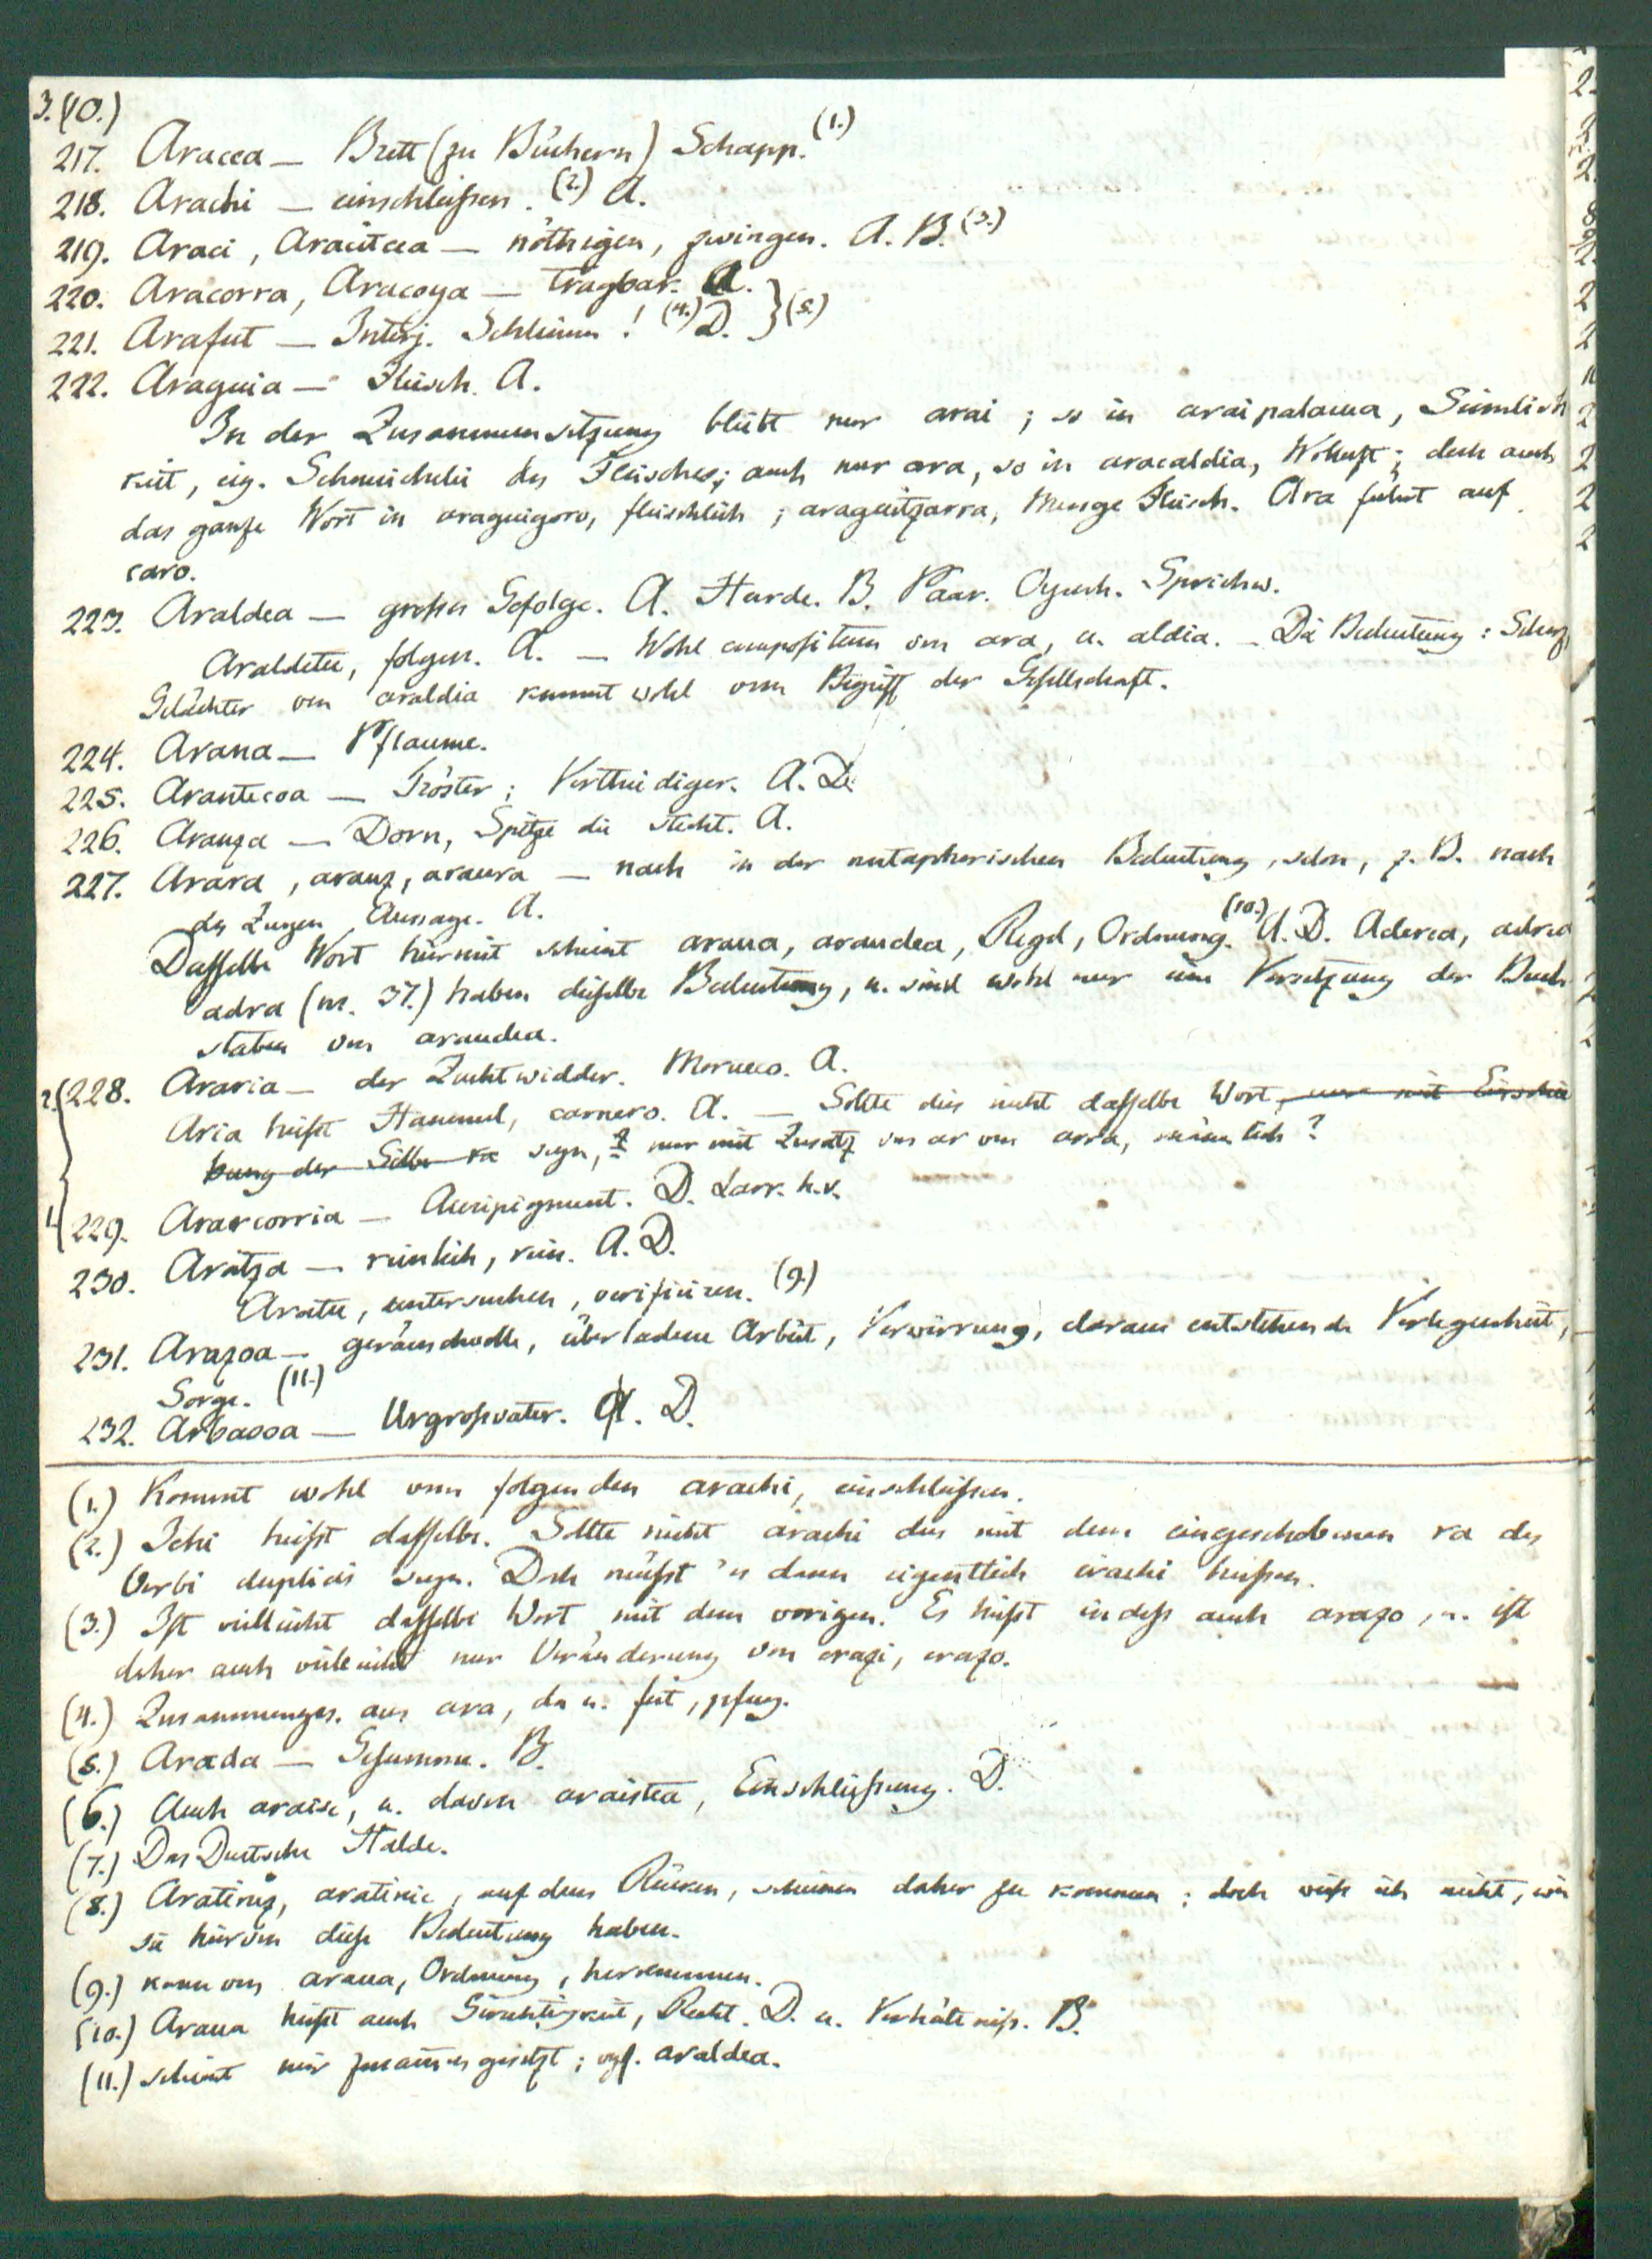 3. (10.)
217. Aracea — Brett (zu Büchern) Schapp. (1.)
218. Arachi — einschließen. (2.) A.
219. Araci, Aracitcea — nöthigen, zwingen. A. B. (3.)
220. Aracorra, Aracoya — tragbar. A.
221. Arafut — Interj. Schleim! (4.) D. } (5.)
222. Araguia — Fleisch. A.
In der Zusammensetzung bleibt nur arai; so in araipalacua, Sinnlich
keit, eig. Schmeichelei des Fleisches; auch nur ara, so in aracaldia, Wollust; doch auch
das ganze Wort in araguigoro, fleischlich; araguitzarra, Menge Fleisch. Ara führt auf
caro.
223. Araldea — großes Gefolge. A. Heerde. B. Paar. Oyenh. Sprichw.
Araldetu, folgen. A. — Wohl compositum von ara, u. aldia. — Die Bedeutung: Scherz,
Gelächter von araldia kommt wohl vom Begriff der Gesellschaft.
224. Arana — Pflaume.
225. Arantecoa — Tröster; Vertheidiger. A. D.
226. Aranza — Dorn, Spitze die sticht. A.
227. Arara, arauz, araura — nach in der metaphorischen Bedeutung, secundum, z. B. nach
des Zeugen Aussage. A.
Dasselbe Wort hiermit scheint araua, araudea, Regel, Ordnung. (10.) A. D. Aderea, adrea
adra (nr. 37.) haben dieselbe Bedeutung, u. sind wohl nur eine Versetzung der Buch
staben von araudea.
2. 228. Araria — der Zuchtwidder. Morueco. A.
Aria heißt Hammel, carnero. A. — Sollte dies nicht dasselbe Wort, nur mit Einschie
bung der Silbe ra seyn, nur mit Zusatz von ar von arra, männlich?
1. 229. Ararcorria — Auripigment. D. Larr. h.v.
230. Aratza — reinlich, rein. A. D.
Aratu, untersuchen, verificiren. (9.)
231. Arazoa — geräuschvolle, überladene Arbeit, Verwirrung, daraus entstehende Verlegenheit,
Sorge. (11.)
232. Arbasoa — Urgroßvater. A. D.
(1.) Kommt wohl vom folgenden arachi, einschließen.
(2.) Ichi heißt dasselbe. Sollte nicht arachi dies mit dem eingeschobenen ra des
Verbi duplicis seyn. Doch müßt' es dann eigentlich irachi heißen.
(3.) Ist vielleicht dasselbe Wort mit dem vorigen. Es heißt indeß auch arazo, u. ist
daher auch vielleicht nur Veränderung von erazi, erazo.
(4.) Zusammenges. aus ara, da u. fut, pfuy.
(5.) Arada — Gesumme. B.
(6.) Auch araisi, u. davon araistea, Einschließung. D.
(7.) Das Deutsche Halde.
(8.) Aratiniz, aratinic, auf dem Rücken, scheinen daher zu kommen; doch weiß ich nicht, wie
sie hiervon diese Bedeutung haben.
(9.) kann von araua, Ordnung, herkommen.
(10.) Araua heißt auch Gerechtigkeit, Recht. D. u. Verhältniß. B.
(11.) scheint mir zusammengesetzt; vgl. araldea.